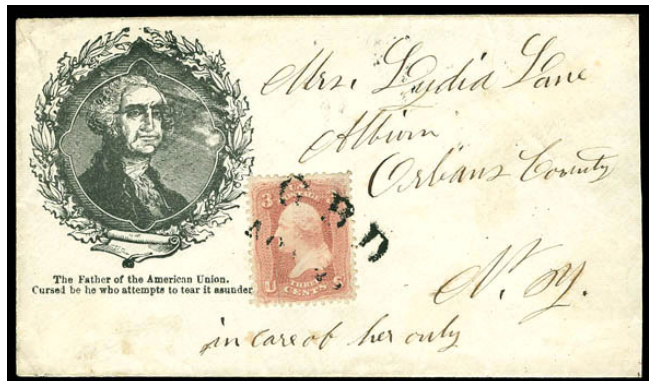 Mrs. Lydia Lane
Albion
Orleans County
N. Y.
in care of her only
The Father of the American Union.
Cursed be he who attempts to tear it asunder
3
U S
THREE
CENTS